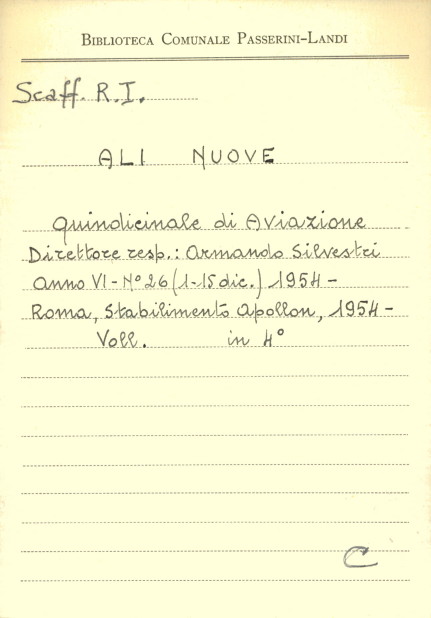 BIBLIOTECA COMUNALE PASSERINI-LANDI
Scaff. R.I.
ALI NUOVE
Quindicinale di Aviazione
Direttore resp.: Armando Silvestri
Anno VI - N° 26 (1-15 dic.) 1954 -
Roma, Stabilimento Apollon, 1954 -
Voll. in 4°
C